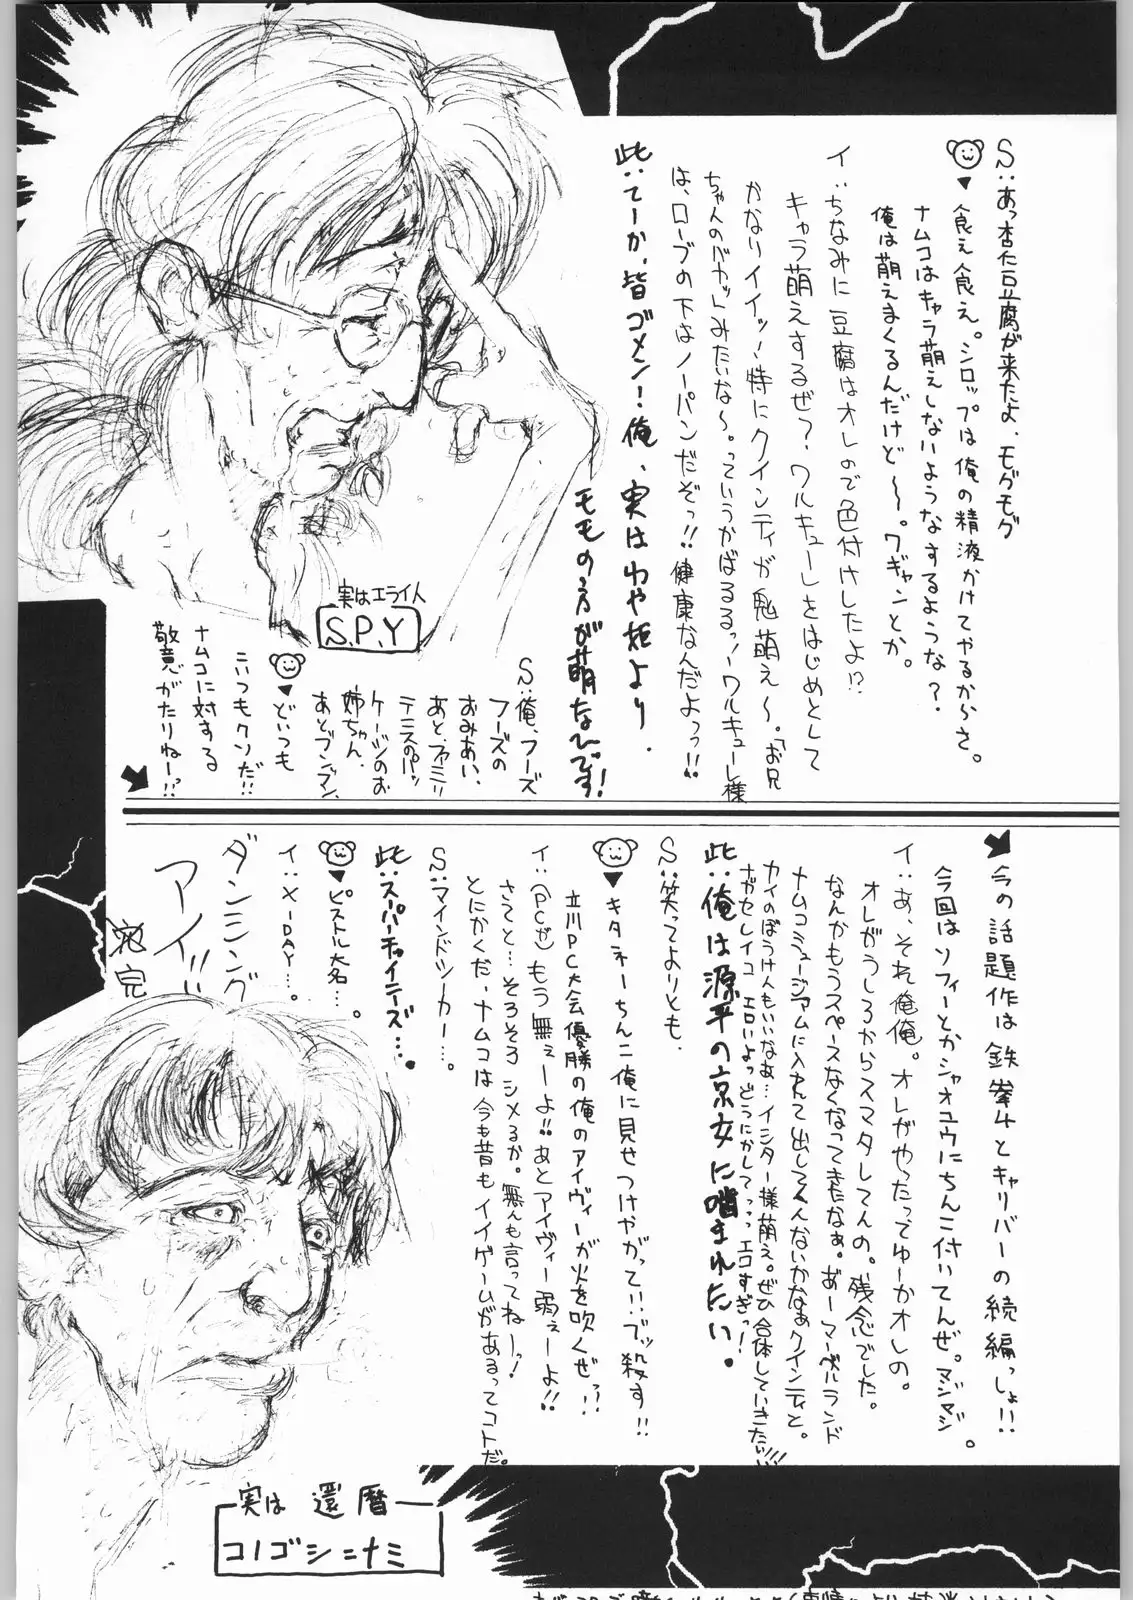 S:あっ杏仁豆腐が来たよ、モグモグ
▼食え食え。シロップは俺の精液かけてやるからさ。
ナムコはキャラ萌えしないようなするような?
俺は萌えまくるんだけど〜。ワギャンとか。
イ:ちなみに豆腐はオレので色付けしたよ!?
キャラ萌えするぜ?ワルキューレをはじめとして
かなりイイッ!特にクインティが鬼萌え〜。「お兄
ちゃんのバカッ」みたいな〜。っていうかばるるっ!ワルキューレ様
は、ローブの下はノーパンだぞっ!!健康なんだよっっ!!
此:てーか、皆ゴメン!俺、実はわや姫より、
モモの方が萌なんです!
S:俺、フーズ
フーズの
おみあい、
あと、ファミリー
テニスのパッ
ケージのお
姉ちゃん、
あとブンブン、
▼どいつも
こいつもクソだ!!
ナムコに対する
敬意がたりねー!?
実はエライ人
S.P.Y
今の話題作は鉄拳4とキャリバーの続編っしょ!!
今回はソフィーとかシャオユウにちんこ付いてんぜ。マジマジ。
イ:あ、それ俺俺。オレがやったってゆーかオレの。
オレがうしろからスマタしてんの。残念でした。
なんかもうスペースなくなってきたなぁ。あーマーベルランド
ナムコミュージアムに入れて出してくんないかなぁクインティと。
カイのぼうけんもいいなぁ…イシター様萌え。ぜひ合体していきたいぃ!!!
ガゼレイユ エロいよっどうにかしてっっっ エロすぎっ!
此:俺は源平の京女に噛まれたい。
S:笑ってよりとも、
▼キタネーちんこ俺に見せつけやがって!!ブッ殺す!!
立川PC大会優勝の俺のアイヴィーが火を吹くぜっ!?
イ:(PCが)もう無えーよ!!あとアイヴィー弱えーよ!!
さてと…そろそろシメるか。無んも言ってねーっ!
とにかくだ、ナムコは今も昔もイイゲームがあるってコトだ。
S:マインドシーカー…。
此:スーパーチャイニーズ…。
▼ピストル大名…。
イ:X-DAY…。
ダンシング
アイ!!
完
実は 還暦
コノゴシニナミ